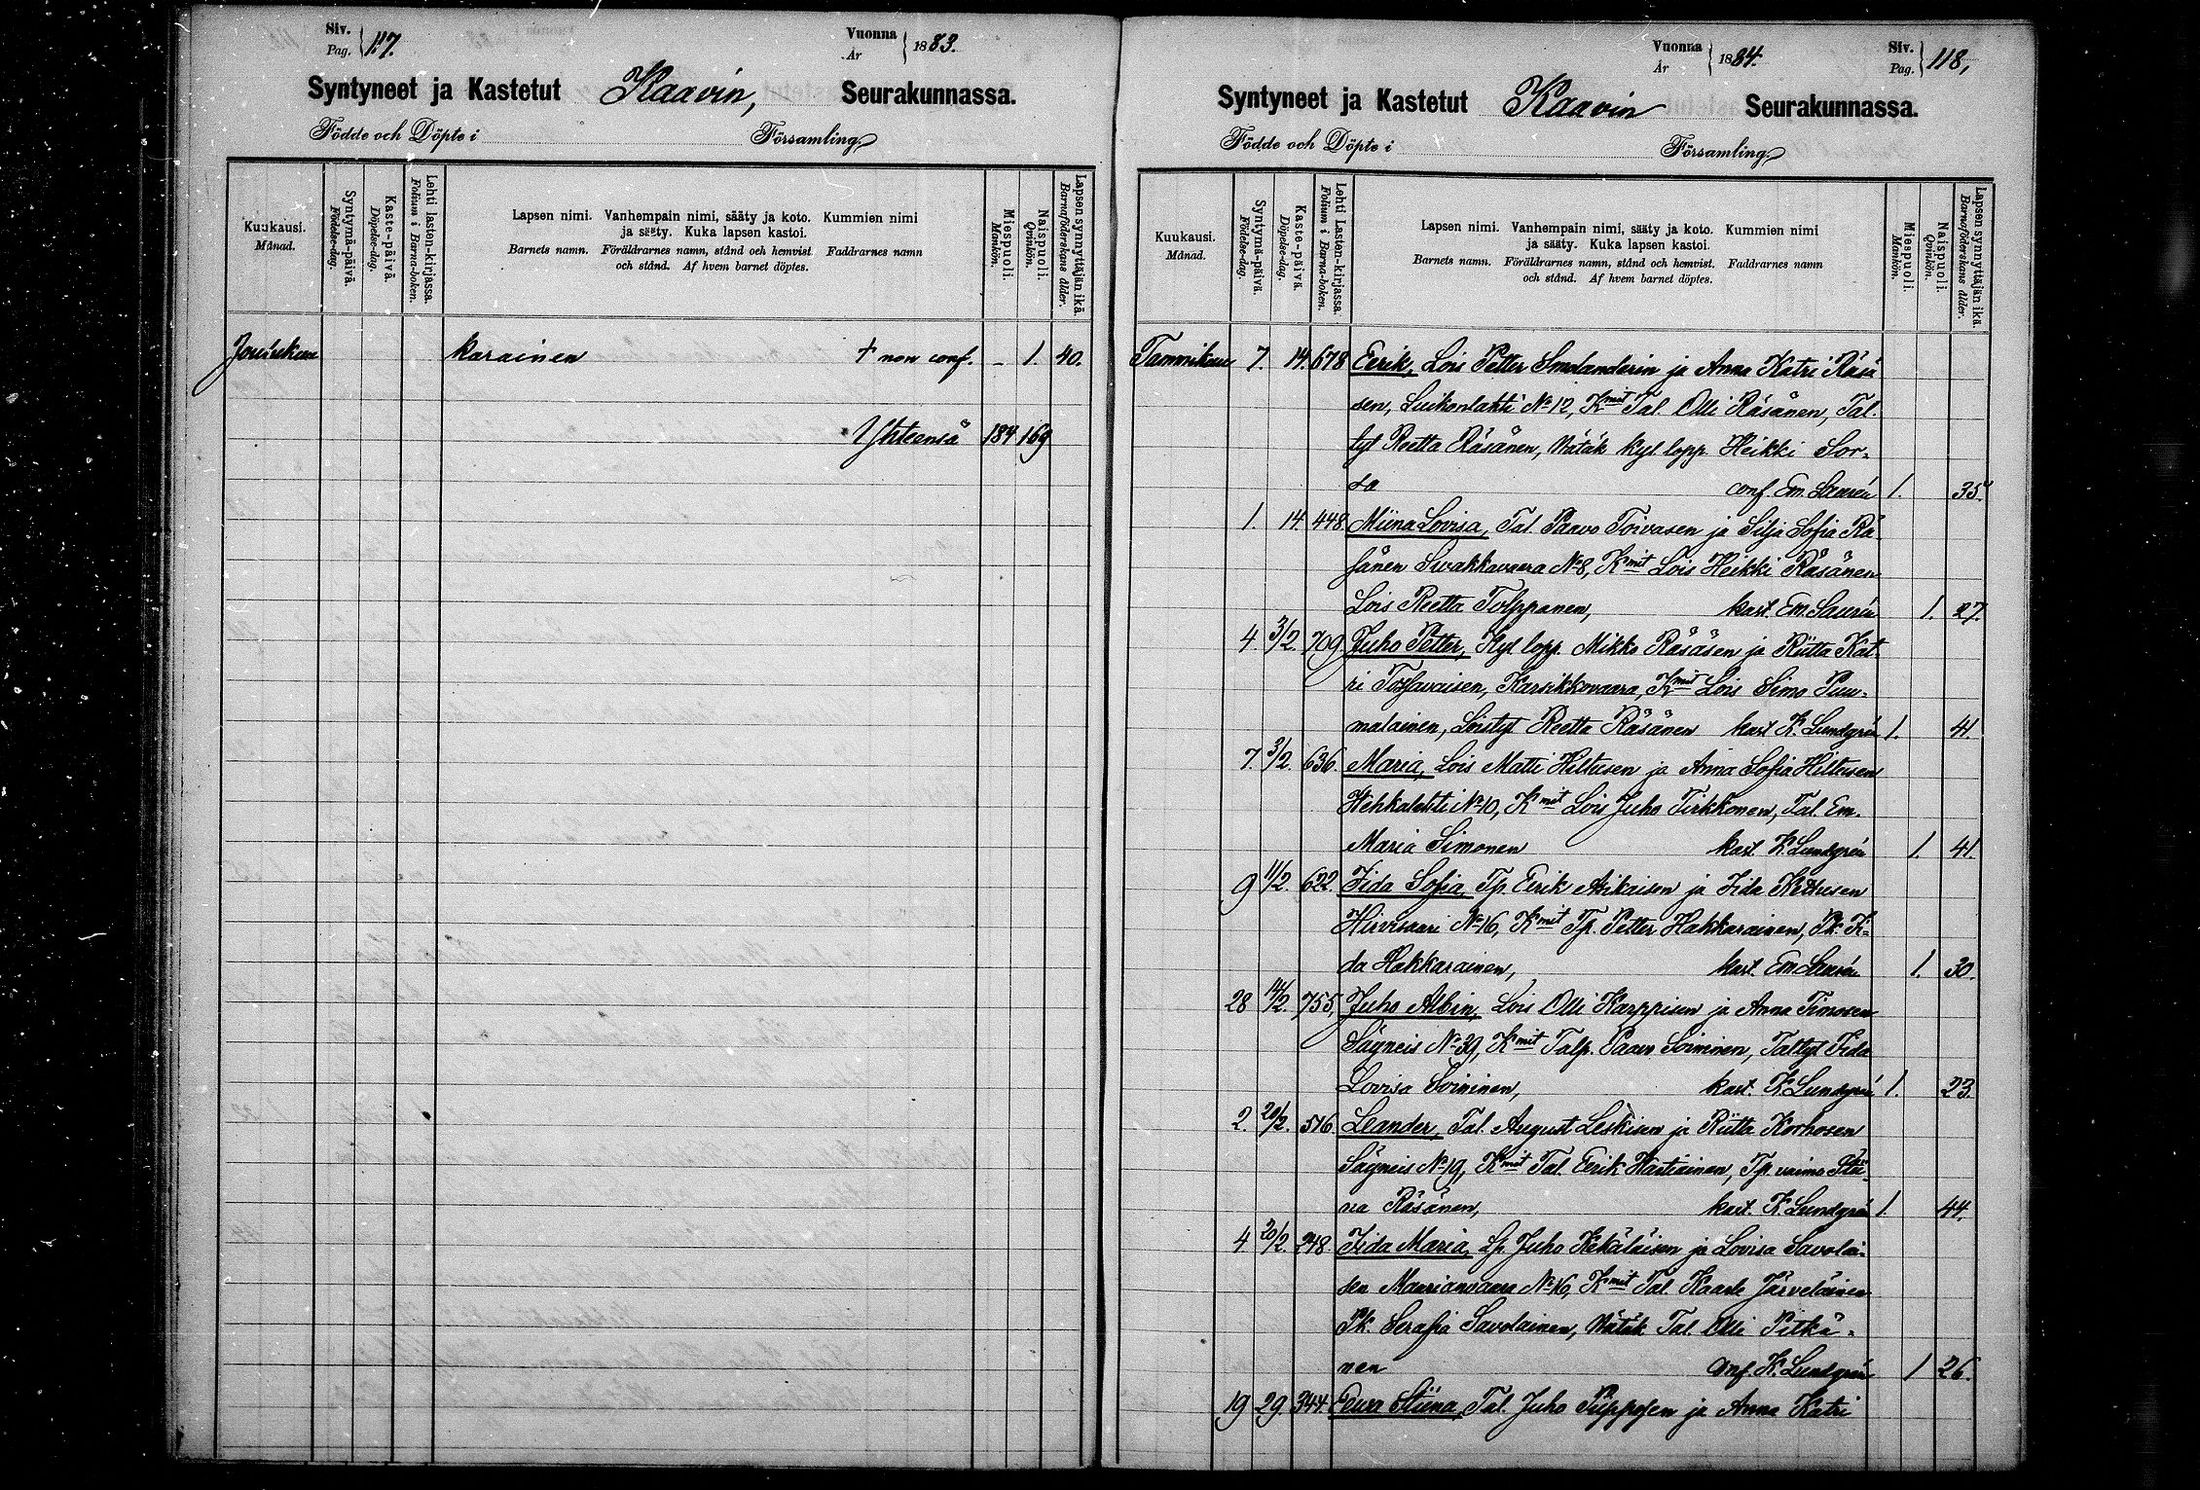 Siv.
Pag. 117.
Vuonna
År 1883.
Syntyneet ja Kastetut Kaavin, Seurakunnassa.
Födde och Döpte i Församling
Kuukausi.
Månad.
Syntymä-päivä.
Födelse-dag.
Kaste-päivä.
Döpelse-dag.
Lehti lasten-kirjassa.
Folium i Barna-boken.
Lapsen nimi. Vanhempain nimi, sääty ja koto. Kummien nimi
ja sääty. Kuka lapsen kastoi.
Barnets namn. Föräldrarnes namn, stånd och hemvist. Faddrarnes namn
och stånd. Af hvem barnet döptes.
Miespuoli.
Mankön.
Naispuoli.
Qvinkön.
Lapsen synnyttäjän ikä
Barnaföderskans ålder.
Jouluukuu karainen † non conf. – 1. 40.
Yhteensä 184 169
Vuonna
År 1884.
Siv.
Pag. 118,
Syntyneet ja Kastetut Kaavin Seurakunnassa.
Födde och Döpte i Församling
Kuukausi.
Månad.
Syntymä-päivä.
Födelse-dag.
Kaste-päivä.
Döpelse-dag.
Lehti Lasten-kirjassa
Folium i Barna-boken.
Lapsen nimi. Vanhempain nimi, sääty ja koto. Kummien nimi
ja sääty. Kuka lapsen kastoi.
Barnets namn. Föräldrarnes namn, stånd och hemvist. Faddrarnes namn
och stånd. Af hvem barnet döptes.
Miespuoli.
Mankön.
Naispuoli.
Qvinkön.
Lapsen synnyttäjän ikä.
Barnaföderskans ålder.
Tammikuu 7. 14. 678 Eerik, Lois Petter Smolanderin ja Anna Katri Räsä
sen, Luikonlahti No 12, Kmit Tal. Olli Räsänen, Tal.
tyt Reetta Räsänen, Hätäk kyl lopp. Heikki Sor-
sa conf. Em. Laurén 1. 35.
1. 14. 448. Miina Lovisa, Tal. Paavo Toivasen ja Silja Sofia Rä-
sänen Sivakkavaara No 8, Kmit Lois Heikki Räsänen
Lois Reetta Tolppanen, kast. Em. Laurén 1. 27.
4. 3/2. 709. Juho Petter, Kyl lopp. Mikko Räsäsen ja Riitta Kat-
ri Tossavaisen, Karsikkovaara, Kmit Lois Simo Puu-
malainen, Loistyt Reetta Räsänen kast K. Lundgrén 1. 41
7. 3/2. 636. Maria, Lois Matti Hiltusen ja Anna Sofia Hiltusen
Wehkalahti No 10, Kmit Lois Juho Tirkkonen, Tal. Em.
Maria Simonen kast. K. Lundgrén 1. 41.
9 11/2. 622. Iida Sofia, Tp. Eerik Asikaisen ja Iida Kettusen
Hirvisaari No 16, Kmit Tp. Petter Hakkarainen, Pk. Ii-
da Hakkarainen, kast. Em Laurén 1. 30.
28 14/2. 755, Juho Albin, Lois Olli Karppisen ja Anna Timosen
Säyneis No 39, Kmit Talp. Paavo Soininen, Taltyt Iida
Lovisa Soininen, kast. K. Lundgrén 1. 23.
2. 20/2. 516. Leander, Tal. August Leskisen ja Riitta Korhosen
Säyneis No 19, Kmit Tal. Eerik Hartiainen, Tp. vaimo Stii-
na Räsänen, kast. K. Lundgrén 1 44.
4 20/2. 248. Iida Maria, Lp. Juho Kekäläisen ja Lovisa Savolai-
sen Maarianvaara No 16, Kmit Tal. Kaarle Järveläinen
Pk. Serafia Savolainen, Hätäk Tal. Olli Pitkä-
nen conf. K. Lundgrén 1 26.
19 29. 344. Eeva Stiina, Tal. Juho Piipposen ja Anna Katri